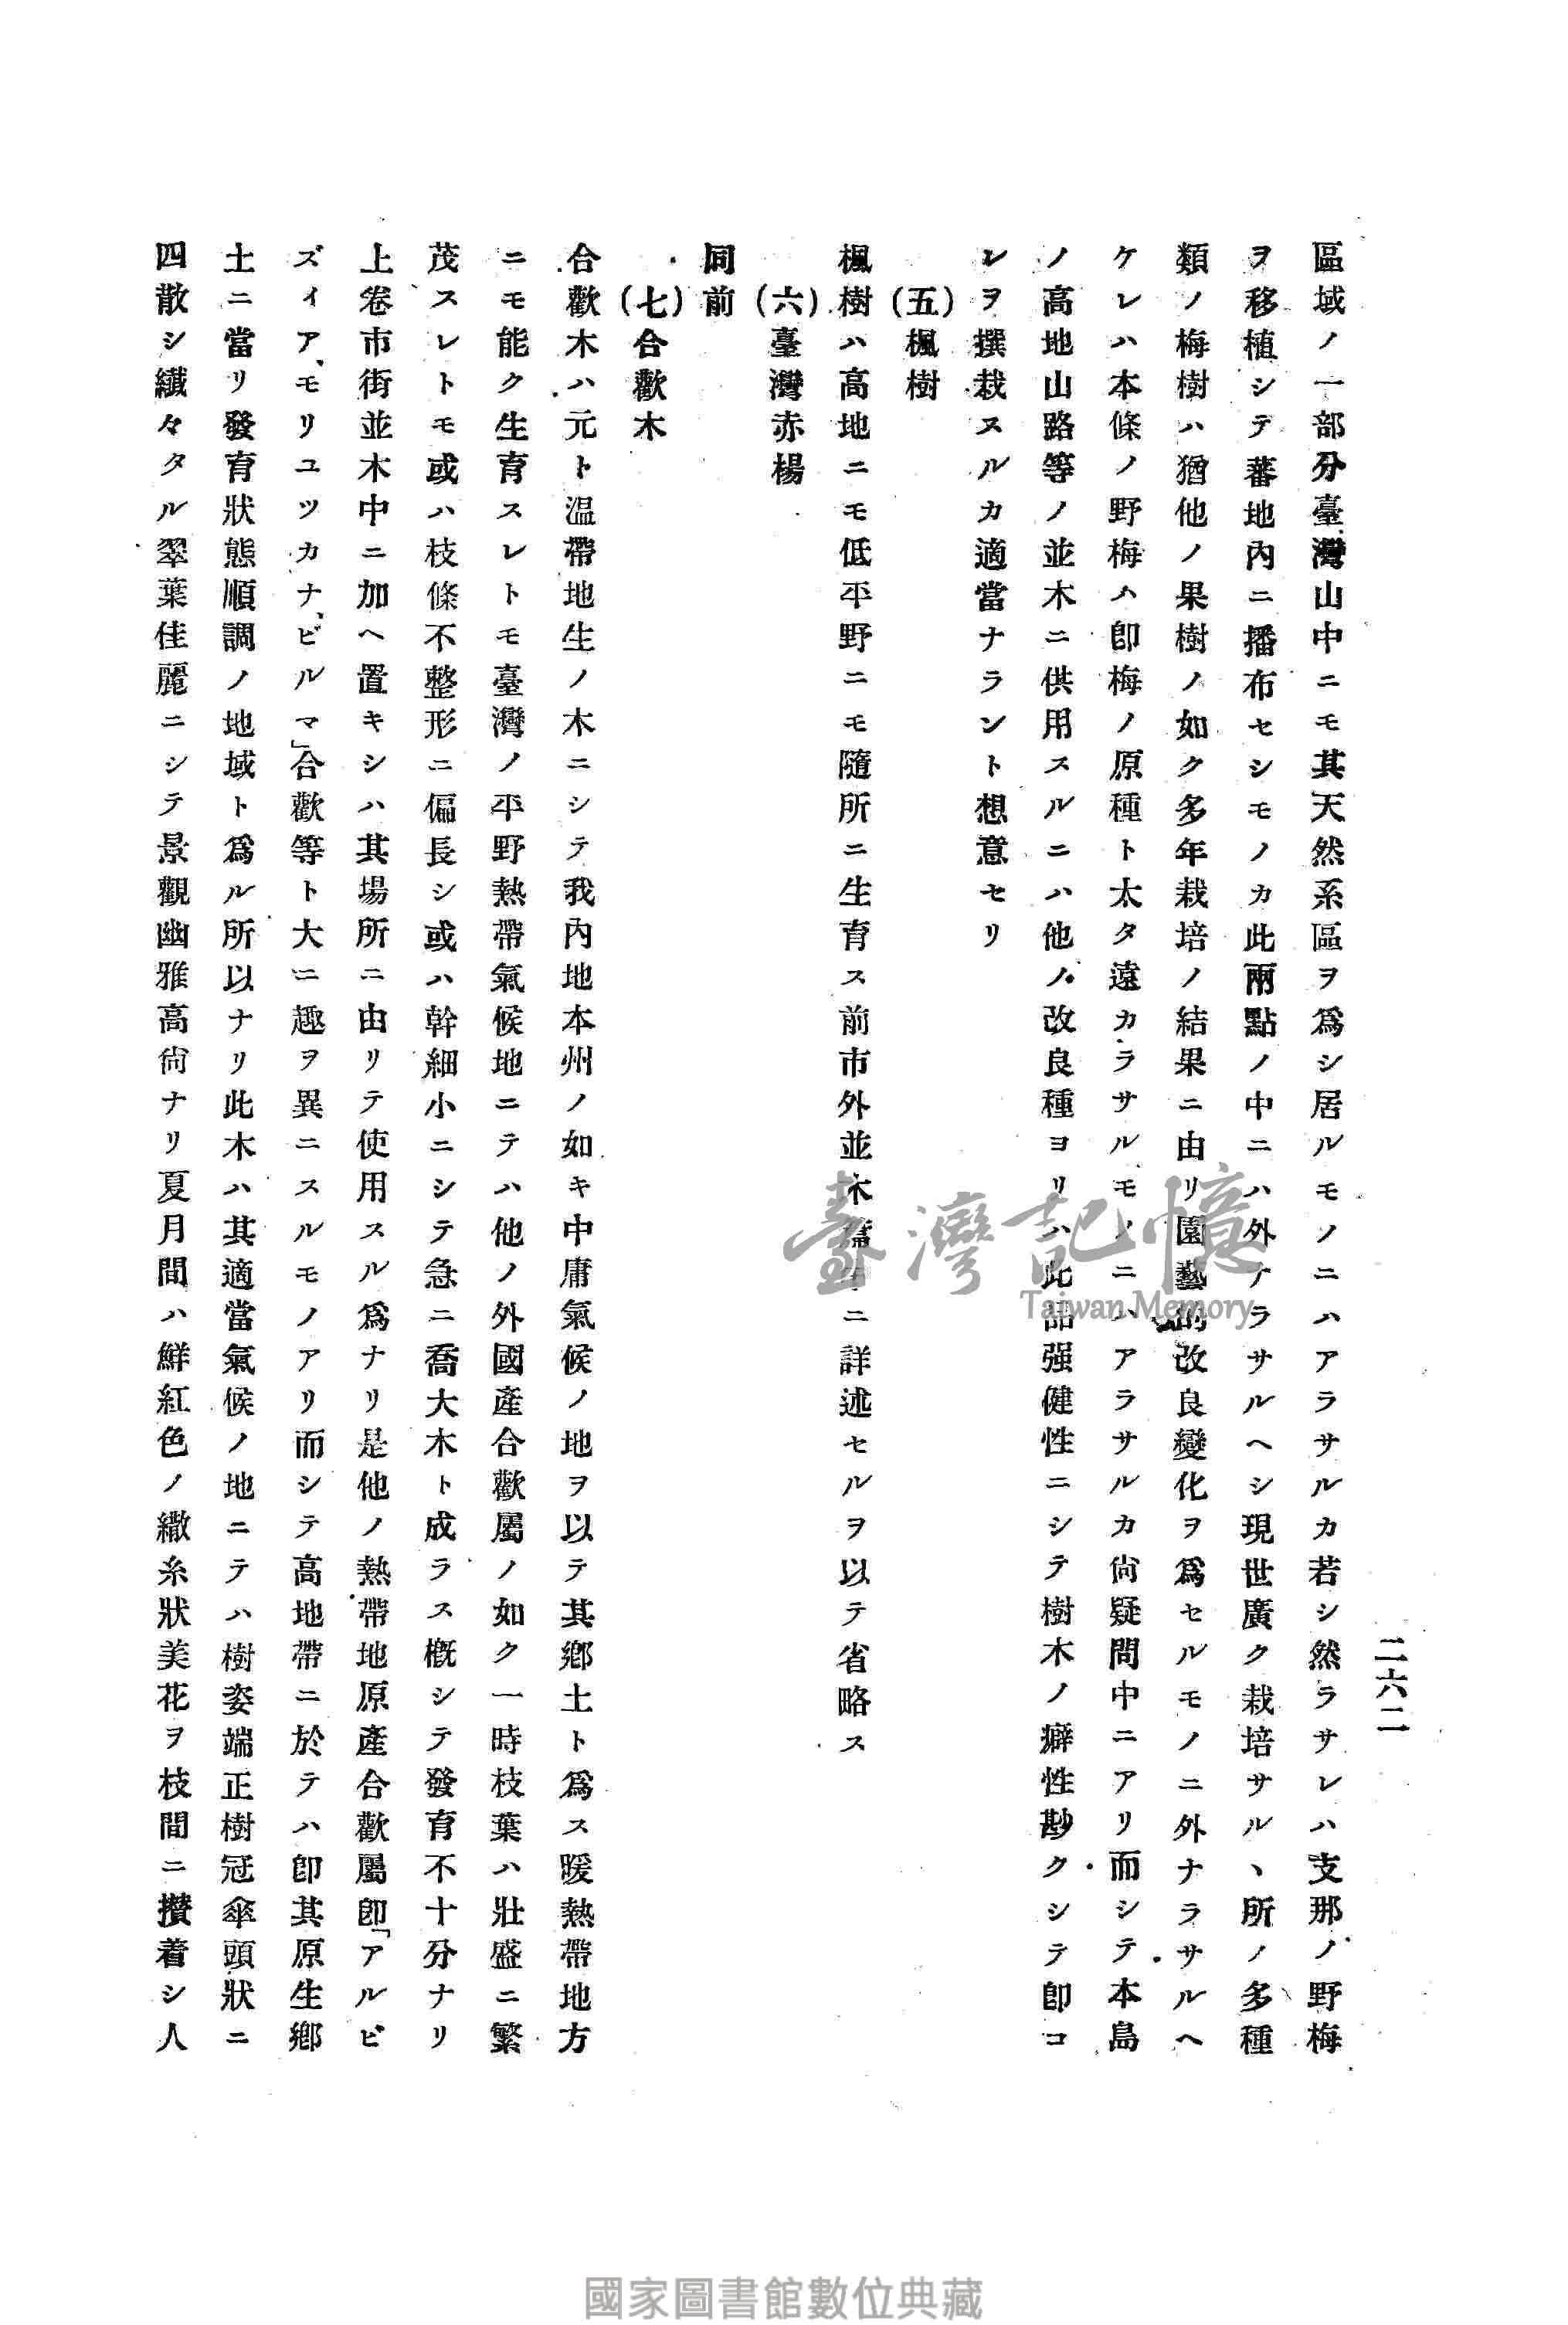 二六二
區域ノ一部分臺灣山中ニモ其天然系區ヲ爲シ居ルモノニハアラサルカ若シ然ラサレハ支那ノ野梅
ヲ移植シテ蕃地內ニ播布セシモノカ此兩點ノ中ニハ外ナラサルヘシ現世廣ク栽培サルヽ所ノ多種
類ノ梅樹ハ猶他ノ果樹ノ如ク多年栽培ノ結果ニ由リ園藝的改良變化ヲ爲セルモノニ外ナラサルヘ
ケレハ本條ノ野梅ハ卽梅ノ原種ト太タ遠カラサルモノニハアラサルカ尙疑問中ニアリ而シテ本島
ノ高地山路等ノ並木ニ供用スルニハ他ノ改良種ヨリハ此強健性ニシテ樹木ノ癖性尠クシテ卽コ
レヲ撰栽スルカ適當ナラント想意セリ
(五)楓樹
楓樹ハ高地ニモ低平野ニモ隨所ニ生育ス前市外並木篇ニ詳述セルヲ以テ省略ス
(六)臺灣赤楊
同前
(七)合歡木
合歡木ハ元ト温帶地生ノ木ニシテ我內地本州ノ如キ中庸氣候ノ地ヲ以テ其鄕土ト爲ス暖熱帶地方
ニモ能ク生育スレトモ臺灣ノ平野熱帶氣候地ニテハ他ノ外國產合歡屬ノ如ク一時枝葉ハ壯盛ニ繁
茂スレトモ或ハ枝條不整形ニ偏長シ或ハ幹細小ニシテ急ニ喬大木ト成ラス槪シテ發育不十分ナリ
上卷市街並木中ニ加ヘ置キシハ其場所ニ由リテ使用スル爲ナリ是他ノ熱帶地原產合歡屬卽「アルビ
ズィア、モリユツカナ、ビルマ」合歡等ト大ニ趣ヲ異ニスルモノアリ而シテ高地帶ニ於テハ卽其原生鄕
土ニ當リ發育狀態順調ノ地域ト爲ル所以ナリ此木ハ其適當氣候ノ地ニテハ樹姿端正樹冠傘頭狀ニ
四散シ纎々タル翠葉佳麗ニシテ景觀幽雅高尙ナリ夏月間ハ鮮紅色ノ繖糸狀美花ヲ枝間ニ攅着シ人
臺灣記憶
Taiwan Memory
國家圖書館數位典藏